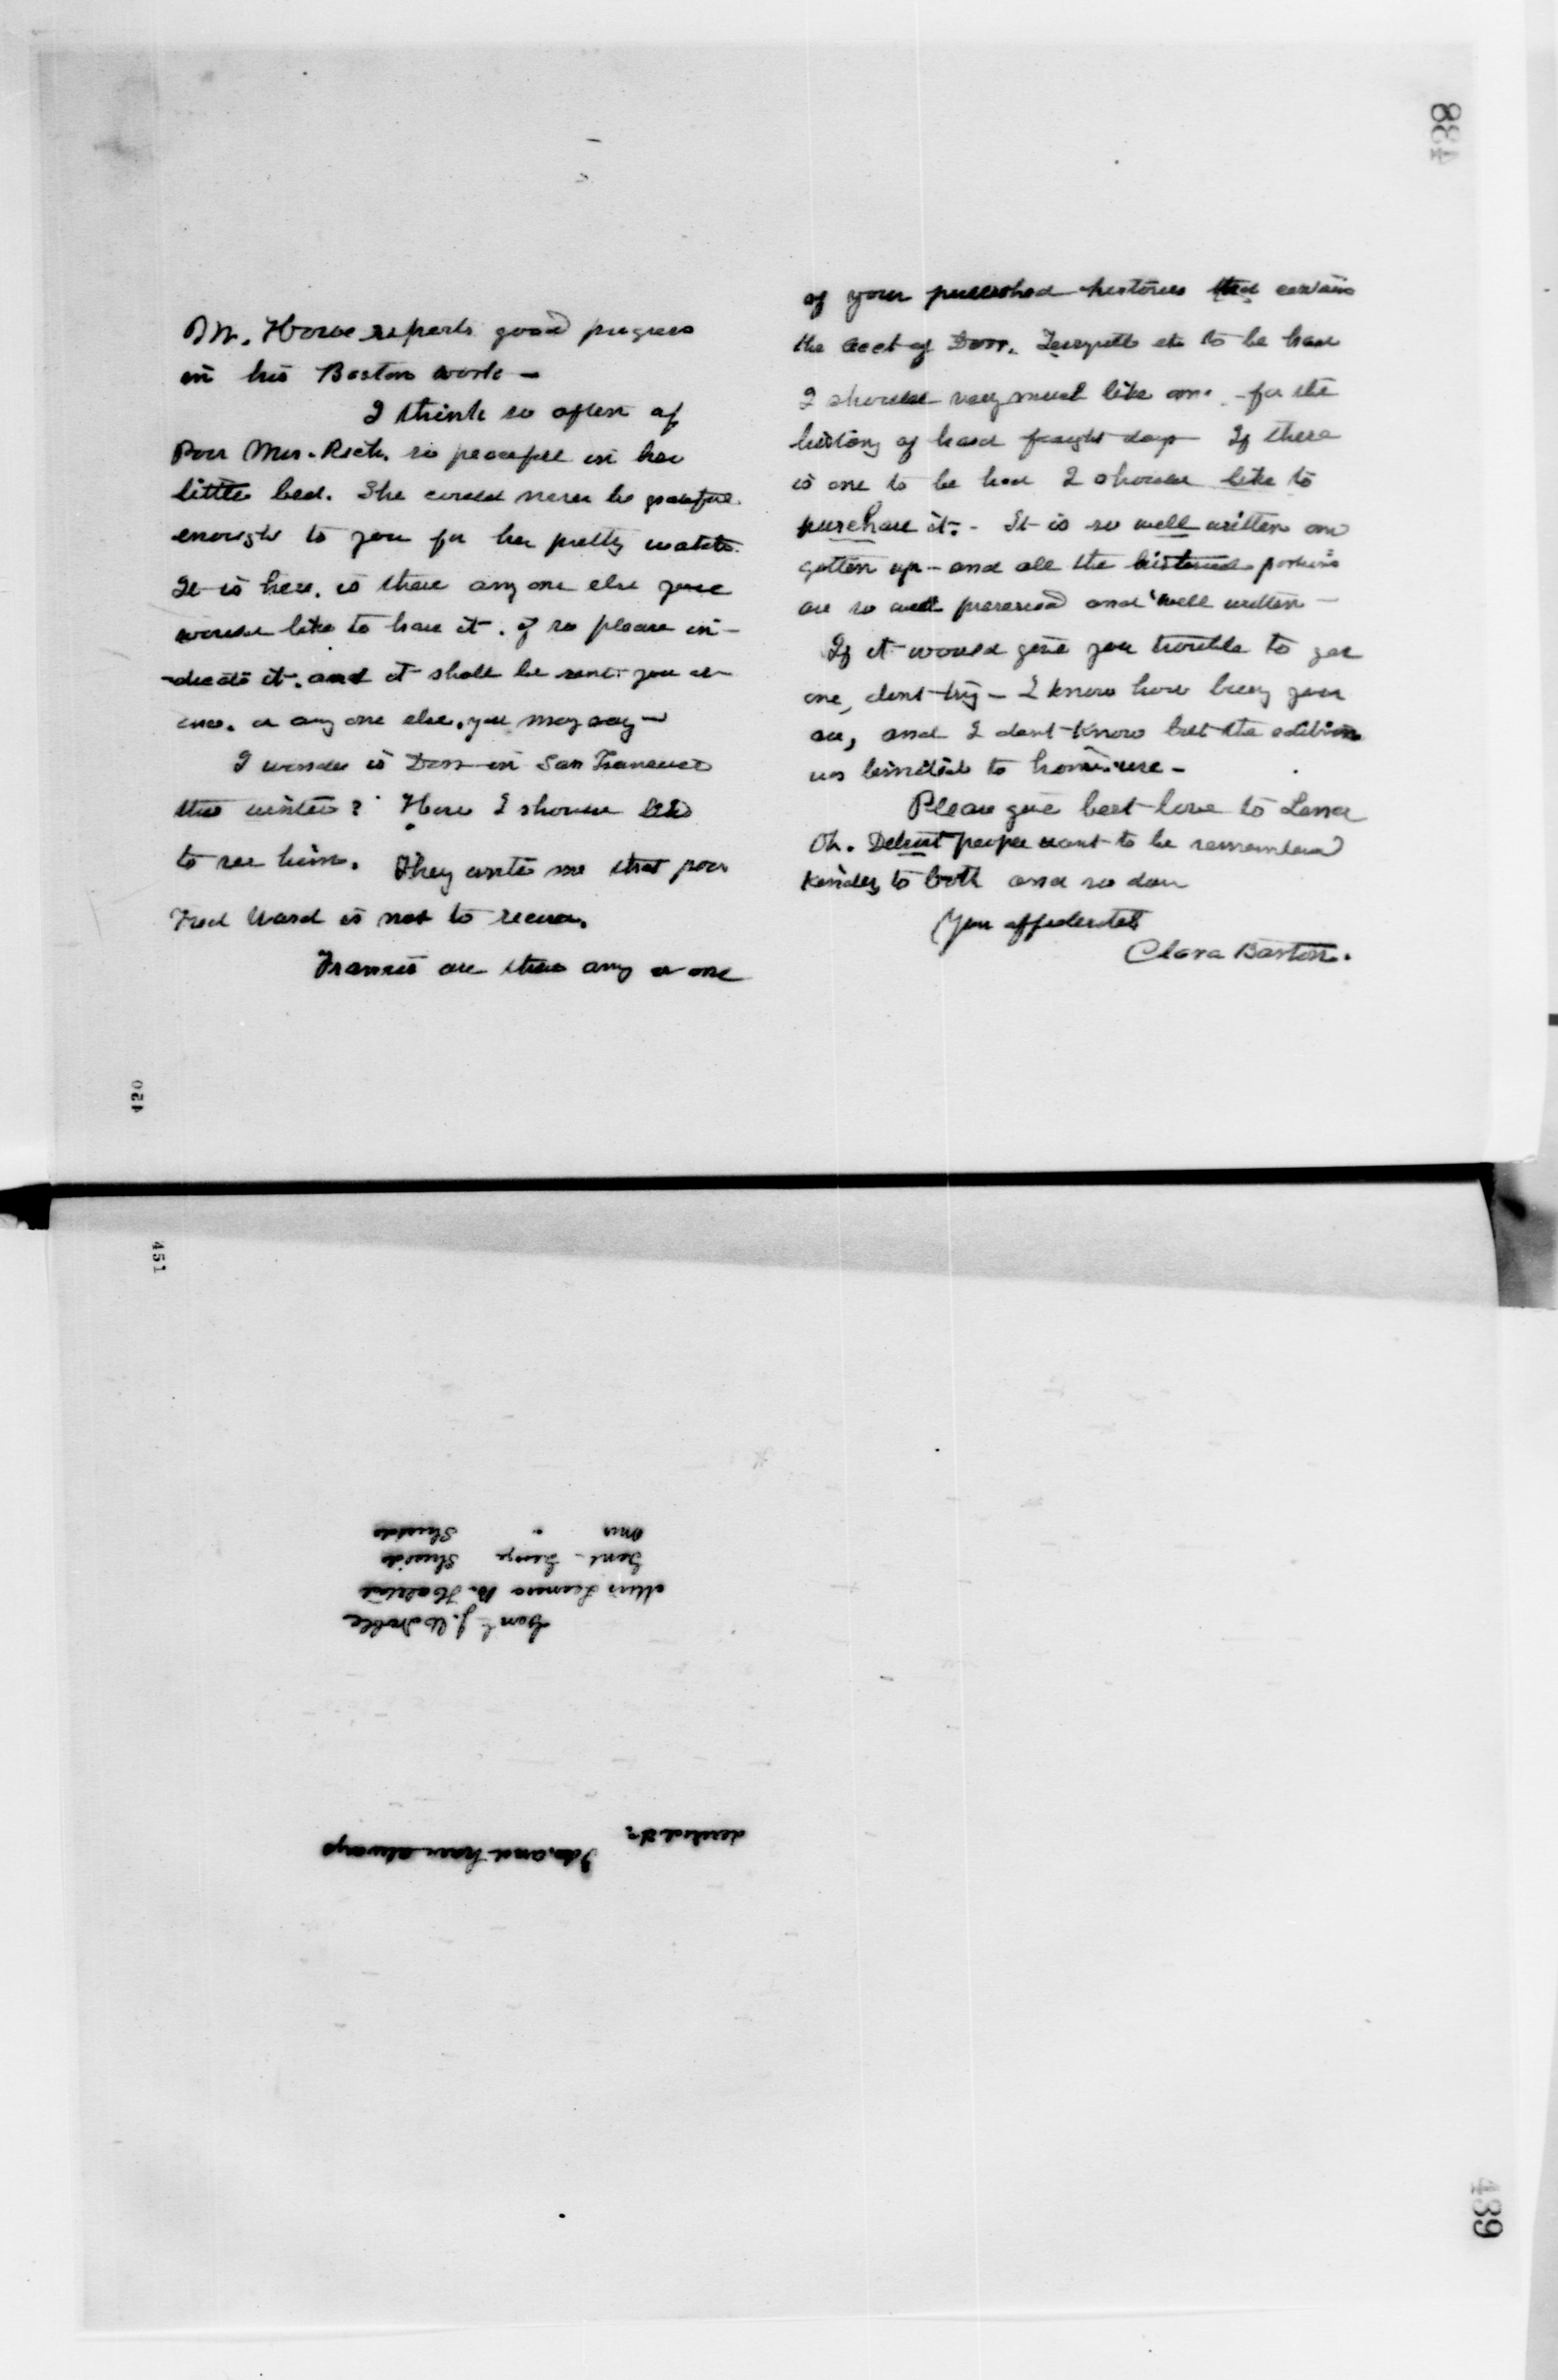 438
Mr. Howe reports good progress
in his Boston work –
I think so often of
Poor Mrs. Rich. so peaceful in her
little bed. She could never be grateful
enough to you for her pretty watch.
It is here. is there any one else you
would like to have it. if so please in-
-dicate it. and it shall be sent you at
once. or any one else, you may say –
I wonder is Dorr in San Francisco
this winter? How I should like
to see him. They write me that poor
Fred Ward is not to recover.
Francis are there any or one
of your published histories that contains
the acct of Dorr. to be had
I should very much like one. – for the
history of hard fought days If there
is one to be had I should like to
purchase it. – It is so well written and
gotten up – and all the historical portions
are so well preserved and well written –
If it would give you trouble to get
one, dont try – I know how busy you
are, and I dont know but the edition
was limited to home use –
Please give best love to Lena
Oh. Detroit people want to be remembered
kindly to both and so do
Your affectionate
Clara Barton.
420
451
desired it.
I do, and have always
Genl J. W. Noble
Miss Leonora B. Halsted
Genl – George Shields
Mrs " Shields
439